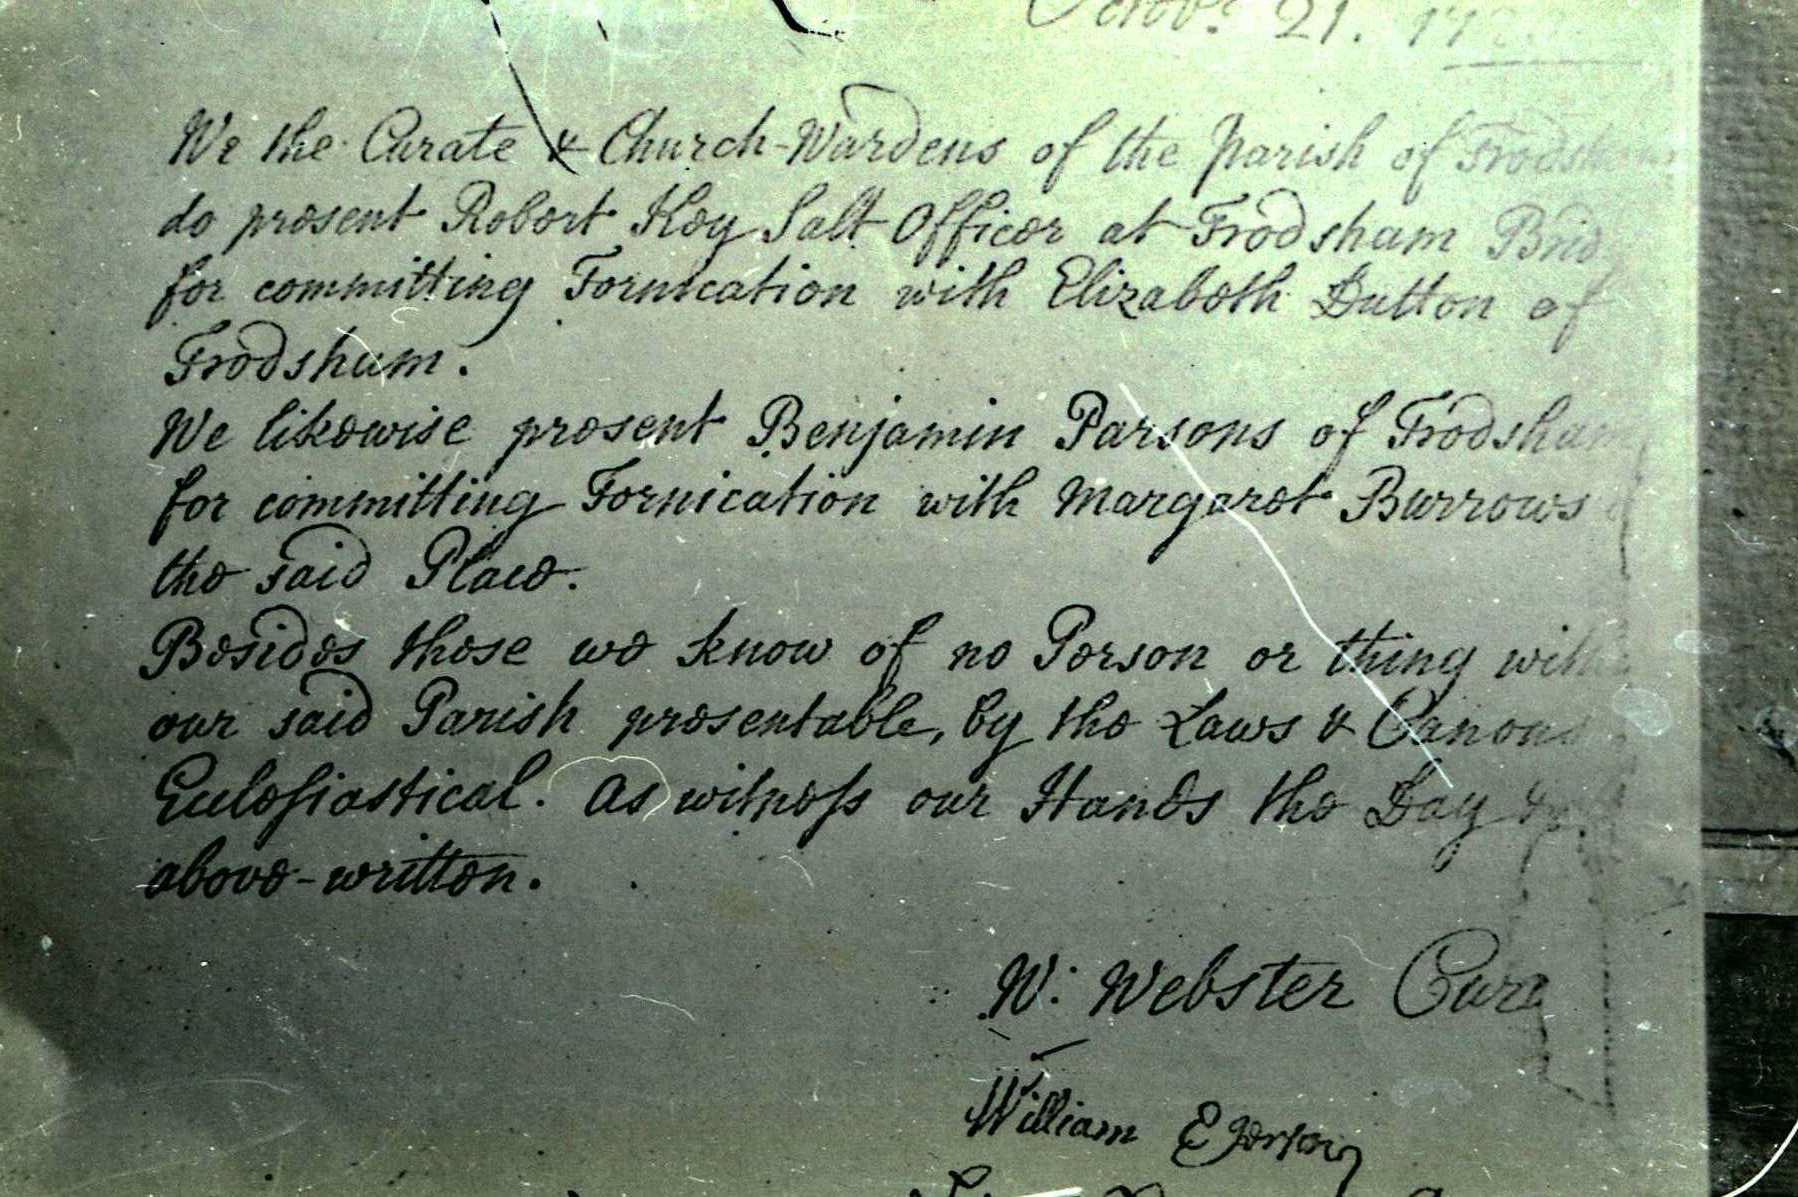 21.
We the Curate & Church-Wardens of the Parish of Frodsham
do present Robert Hoy Salt Officer at Frodsham Brid
for committing Fornication with Elizabeth Dutton of
Frodsham.
We likewise present Benjamin Parsons of Frodsham
for committing Fornication with Margaret Burrows
the said Place.
Besides these we know of no Person or thing with
our said Parish presentable, by the Laws & Canons
Ecclesiastical. As witness our Hands the Day &
above-written.
W: Webster Cura
William